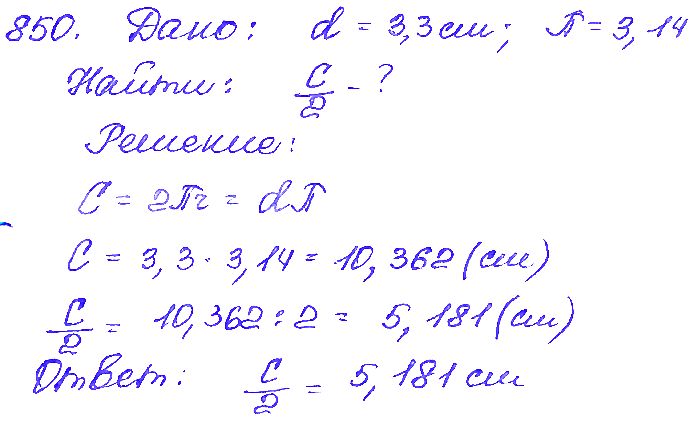 850. Дано: d = 3,3 см; П = 3,14
Найти: C/2 - ?
Решение:
C = 2Пr = dП
C = 3,3 · 3,14 = 10,362 (см)
C/2 = 10,362 : 2 = 5,181 (см)
Ответ: C/2 = 5,181 см